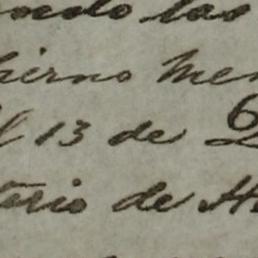 ndo las
ierno Me
l 13 de
tario de H